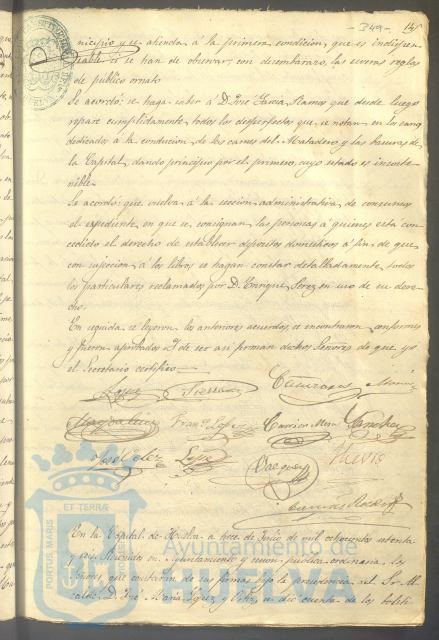 - 349 - 135
nicipio y se atienda á la primera condicion, que es indispen-
sable si se han de observar, con desembarazo, las severas reglas
de publico ornato
Se acordó: se haga saber á D. José Garcia Ramos que desde luego
repare cumplidamente todos los desperfectos que se notan en los carros
dedicados á la conduccion de las carnes del Matadero y las basuras de
la Capital, dando principio por el primero, cuyo estado es insoste-
nible
Se acordó: que vuelva á la seccion administrativa de consumos
el expediente en que se consignan las personas á quienes está con-
cedido el derecho de establecer depositos domesticos á fin de que
con sujecion á los libros se hagan constar detalladamente todos
los particulares reclamados por D. Enrique Perez en uso de su dere-
cho.
En seguida se leyeron los anteriores acuerdos, se encontraron conformes
y fueron aprobados y de ser asi firman dichos Señores de que yo
el Secretario certifico
Franco Lopez Sanchez
Jose Velez Lopez Vazquez
ET TERRÆ
PORTUS MARIS
Ayuntamiento de
HUELVA
En la Capital de Huelva á trece de Julio de mil ochocientos setenta
y seis, Reunidos en Ayuntamiento y sesion publica ordinaria los
Señores que constarán de sus firmas bajo la presidencia del Sor Al-
calde D. José Maria Lopez y se dió cuenta de los boleti-